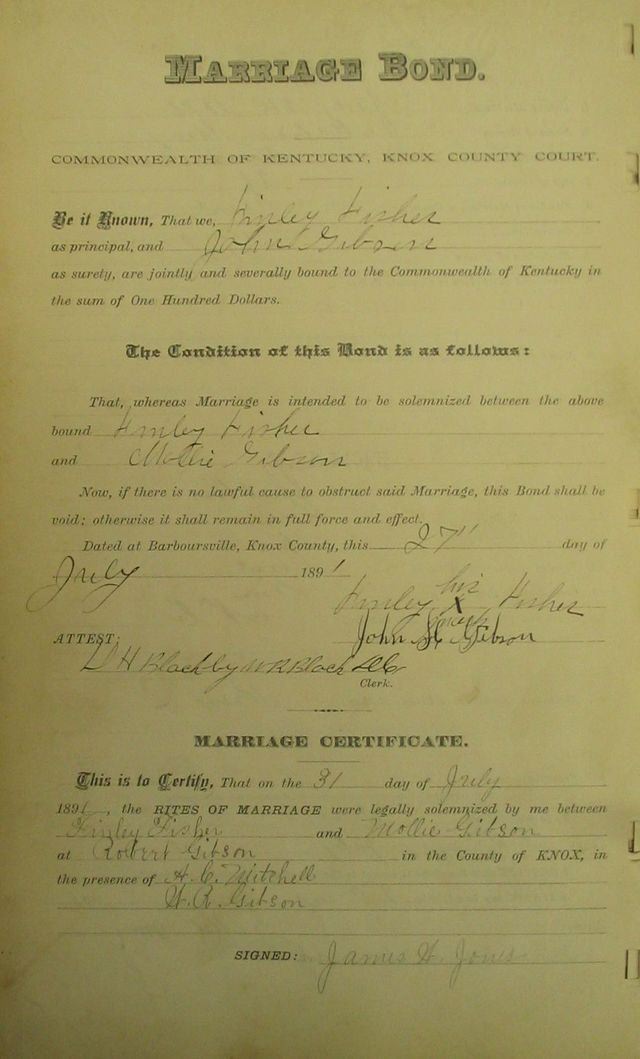 MARRIAGE BOND.
COMMONWEALTH OF KENTUCKY, KNOX COUNTY COURT.
Be it Known, That we, Finley Fisher
as principal, and John Gibson
as surety, are jointly and severally bound to the Commonwealth of Kentucky in
the sum of One Hundred Dollars.
The Condition of this Bond is as follows:
That, whereas Marriage is intended to be solemnized between the above
bound Finley Fisher
and Mollie Gibson
Now, if there is no lawful cause to obstruct said Marriage, this Bond shall be
void; otherwise it shall remain in full force and effect.
Dated at Barboursville, Knox County, this 27" day of
July 1891
Finley his X mark Fisher
John Gibson
ATTEST:
D H Black by W R Black DC
Clerk.
MARRIAGE CERTIFICATE.
This is to Certify, That on the 31 day of July
1891, the RITES OF MARRIAGE were legally solemnized by me between
Finley Fisher and Mollie Gibson
at Robert Gibson in the County of KNOX, in
the presence of H. C. Mitchell
W. R. Gibson
SIGNED: James H. Jones